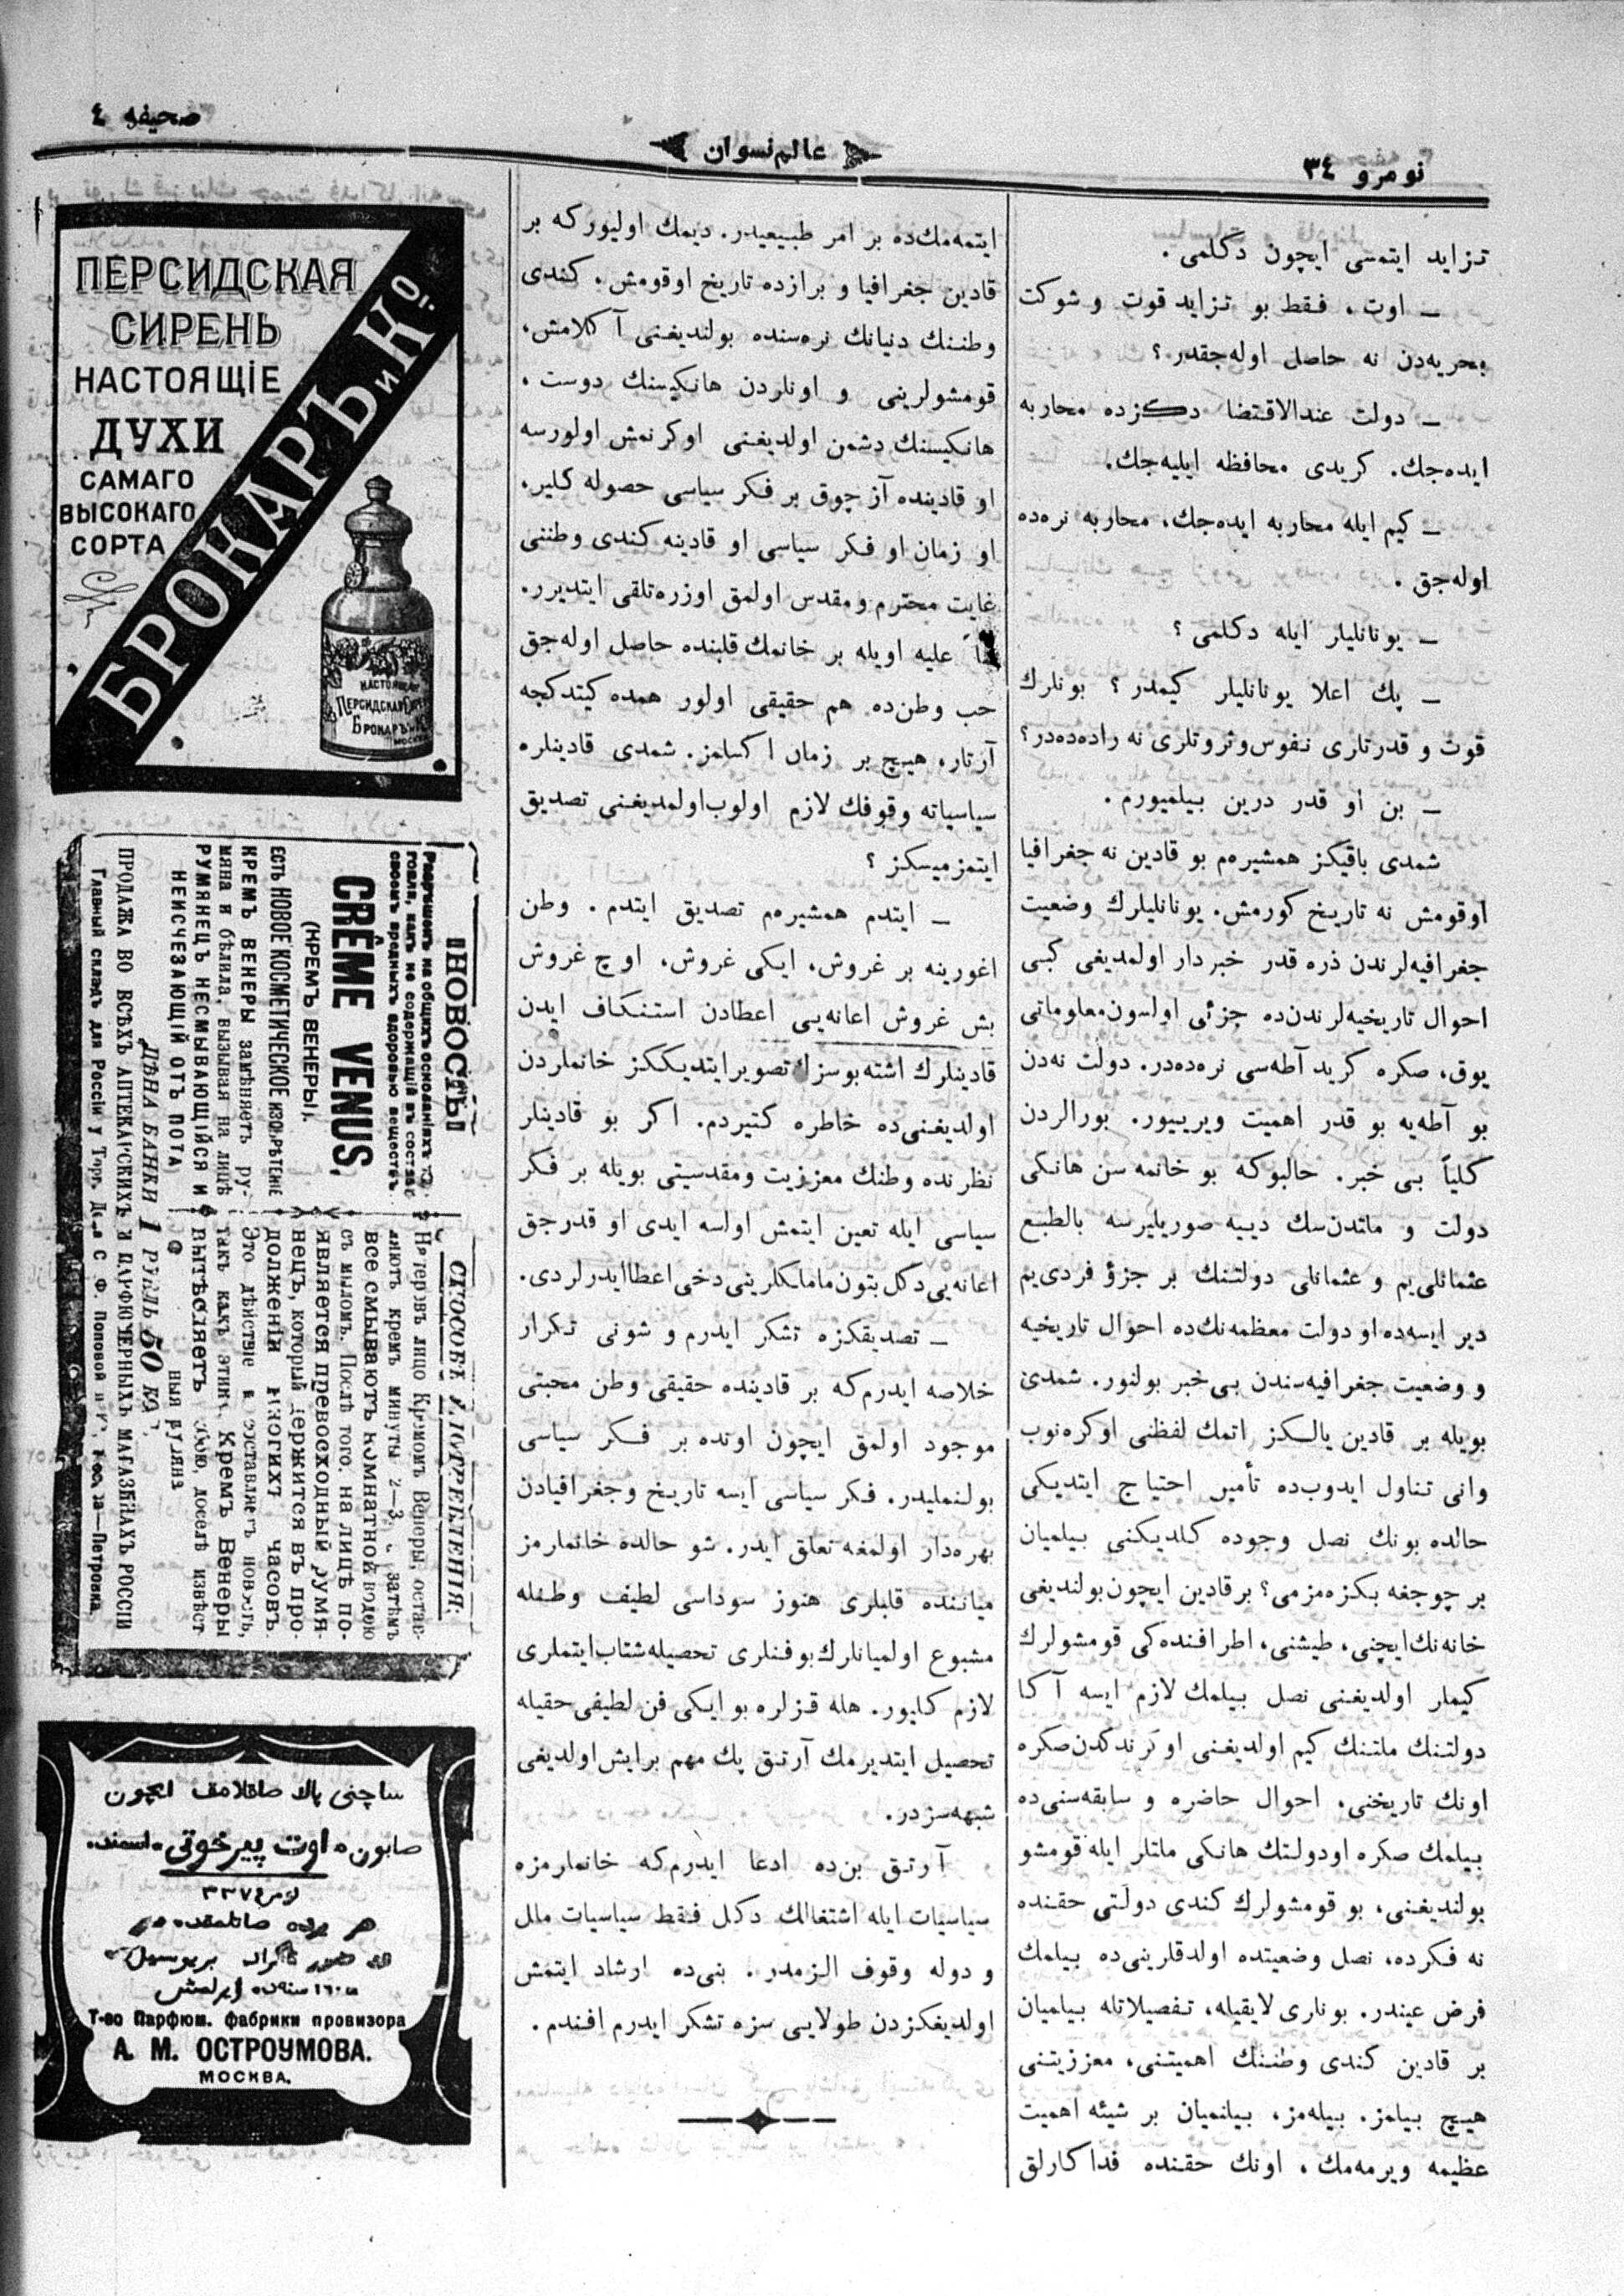 نومرو ٣٤
عالم نسوان
صحیفه ٤
تزاید ایتمسی ایچون دگلمی.
ــ اوت، فقط بو تزاید قوت و شوکت
بحریه‌دن نه حاصل اوله‌جقدر؟
ــ دولت عندالاقتضا دڭزده محاربه
ایده‌جك. کریدی محافظه ایلیه‌جك.
ــ کیم ایله محاربه ایده‌جك، محاربه نره‌ده
اوله‌جق.
ــ یونانلیلر ایله دکلمی؟
ــ پك اعلا یونانلیلر کیمدر؟ بونلرك
قوت و قدرتلری نفوس وثروتلری نه راده‌ده‌در؟
ــ بن او قدر درین بیلمیورم.
شمدی باقیکز همشیره‌م بو قادین نه جغرافیا
اوقومش نه تاریخ کورمش. یونانلیلرك وضعیت
جغرافیه‌لرندن ذره قدر خبردار اولمدیغی کبی
احوال تاریخیه‌لرندن‌ده جزئی اولسون معلوماتی
یوق، صکره کرید آطه‌سی نره‌ده‌در. دولت نه‌دن
بو آطه‌یه بو قدر اهمیت ویرییور. بورالردن
کلیاً بی خبر. حالبوکه بو خانمه سن هانکی
دولت و ملتدن‌سك دییه صوریلیرسه بالطبع
عثمانلی‌یم و عثمانلی دولتنك بر جزؤ فردی‌یم
دیر ایسه‌ده او دولت معظمه‌نك‌ده احوال تاریخیه
و وضعیت جغرافیه‌سندن بی‌خبر بولنور. شمدی
بویله بر قادین یالکز اتمك لفظنی اوکره‌نوب
وانی تناول ایدوب‌ده تأمیر احتیاج ایتدیکی
حالده بونك نصل وجوده کلدیکنی بیلمیان
بر چوجغه بکزه‌مزمی؟ بر قادین ایچون بولندیغی
خانه‌نك ایچنی، طیشنی، اطرافنده‌کی قومشولرك
کیملر اولدیغنی نصل بیلمك لازم ایسه آکا
دولتنك ملتنك کیم اولدیغنی اوکرندکدن صکره
اونك تاریخنی. احوال حاضره و سابقه‌سنی‌ده
بیلمك صکره اودولتك هانکی ملتلر ایله قومشو
بولندیغنی، بو قومشولرك کندی دولتی حقنده
نه فکرده، نصل وضعیتده اولدقلرینی‌ده بیلمك
فرض عیندر. بونلری لایقیله، تفصیلاتله بیلمیان
بر قادین کندی وطننك اهمیتنی، معززیتنی
هیچ بیلمز. بیله‌مز، بیلنمیان بر شیئه اهمیت
عظیمه ویرمه‌مك، اونك حقنده فداکارلق
ایتمه‌مك‌ده بر امر طبیعیدر. دیمك اولیورکه بر
قادین جغرافیا و برازده تاریخ اوقومش، کندی
وطننك دنیانك نره‌سنده بولندیغنی آکلامش،
قومشولرینی و اونلردن هانکیسنك دوست،
هانکیسنك دشمن اولدیغنی اوکرنمش اولورسه
او قادینده آز چوق بر فکر سیاسی حصوله کلیر.
او زمان او فکر سیاسی او قادینه کندی وطننی
غایت محترم و مقدس اولمق اوزره تلقی ایتدیرر.
علیه اویله بر خانمك قلبنده حاصل اوله‌جق
حب وطن‌ده هم حقیقی اولور همده کیتدکجه
آرتار، هیچ بر زمان اکسلمز. شمدی قادینلره
سیاسیاته وقوفك لازم اولوب اولمدیغنی تصدیق
ایتمزمیسکز؟
ــ ایتدم همشیره‌م تصدیق ایتدم. وطن
اغورینه بر غروش، ایکی غروش، اوچ غروش
بش غروش اعانه‌یی اعطادن استنکاف ایدن
قادینلرك اشته بوسزك تصویر ایتدیککز خانملردن
اولدیغنی‌ده خاطره کتیردم. اکر بو قادینلر
نظرنده وطنك معززیت ومقدسیتی بویله بر فکر
سیاسی ایله تعین ایتمش اولسه ایدی او قدرجق
اعانه‌یی دکل بتون ماملکلرینی دخی اعطا ایدرلردی.
ــ تصدیقکزه تشکر ایدرم و شونی تکرار
خلاصه ایدرم‌که بر قادینده حقیقی وطن محبتی
موجود اولمق ایچون اونده بر فکر سیاسی
بولنملیدر. فکر سیاسی ایسه تاریخ وجغرافیادن
بهره‌دار اولمغه تعلق ایدر. شو حالده خانملرمز
میاننده قلبلری هنوز سوداسی لطیف وطنله
مشبوع اولمیانلرك بوفنلری تحصیله شتاب ایتملری
لازم کلیور. هله قزلره بو ایکی فن لطیفی حقیله
تحصیل ایتدیرمك آرتق پك مهم بر ایش اولدیغی
شبهه‌سزدر.
آرتق بن‌ده ادعا ایدرم‌که خانملرمزه
سیاسیات ایله اشتغالك دکل فقط سیاسیات ملل
و دوله وقوف الزمدر. بنی‌ده ارشاد ایتمش
اولدیغکزدن طولایی سزه تشکر ایدرم افندم.
ПЕРСИДСКАЯ
СИРЕНЬ
НАСТОЯЩІЕ
ДУХИ
САМАГО
ВЫСОКАГО
СОРТА
БРОКАРЪ и Ко.
НАСТОЯЩАЯ
ПЕРСИДСКАЯ СИРЕНЬ
БРОКАРЪ и Ко
МОСКВА
НОВОСТЬ!
CRÊME VENUS,
(КРЕМЪ ВЕНЕРЫ).
ЕСТЬ НОВОЕ КОСМЕТИЧЕСКОЕ ИЗОБРѢТЕНІЕ
КРЕМЪ ВЕНЕРЫ замѣняетъ ру-
мяна и бѣлила, вызывая на лицѣ
РУМЯНЕЦЪ НЕСМЫВАЮЩІЙСЯ И
НЕИСЧЕЗАЮЩІЙ ОТЪ ПОТА
СПОСОБЪ УПОТРЕБЛЕНІЯ:
Натеревъ лицо Кремомъ Венеры, остав-
ляютъ кремъ минуты 2—3, затѣмъ
все смываютъ комнатной водою
съ мыломъ. Послѣ того, на лицѣ по-
является превосходный румя-
нецъ, который держится въ про-
долженіи многихъ часовъ.
Это дѣйствіе и составляетъ новость,
такъ какъ этик. Кремъ Венеры
вытѣсняетъ доселѣ извѣст
ныя румяна
ЦѢНА БАНКИ 1 РУБЛЬ 50 КОП.
ПРОДАЖА ВО ВСѢХЪ АПТЕКАРСКИХЪ И ПАРФЮМЕРНЫХЪ МАГАЗИНАХЪ РОССІИ
Главный складъ для Россіи у Торг. Д-ма С. Ф. Поповой Москва—Петровка.
ساچنی پاك صاقلامق ایچون
صابون اوت پیرخوتی اسمنده
نومرو ٣٣٧
هر یرده صاتلمقده‌در
Т-во Парфюм. фабрики провизора
А. М. ОСТРОУМОВА.
МОСКВА.